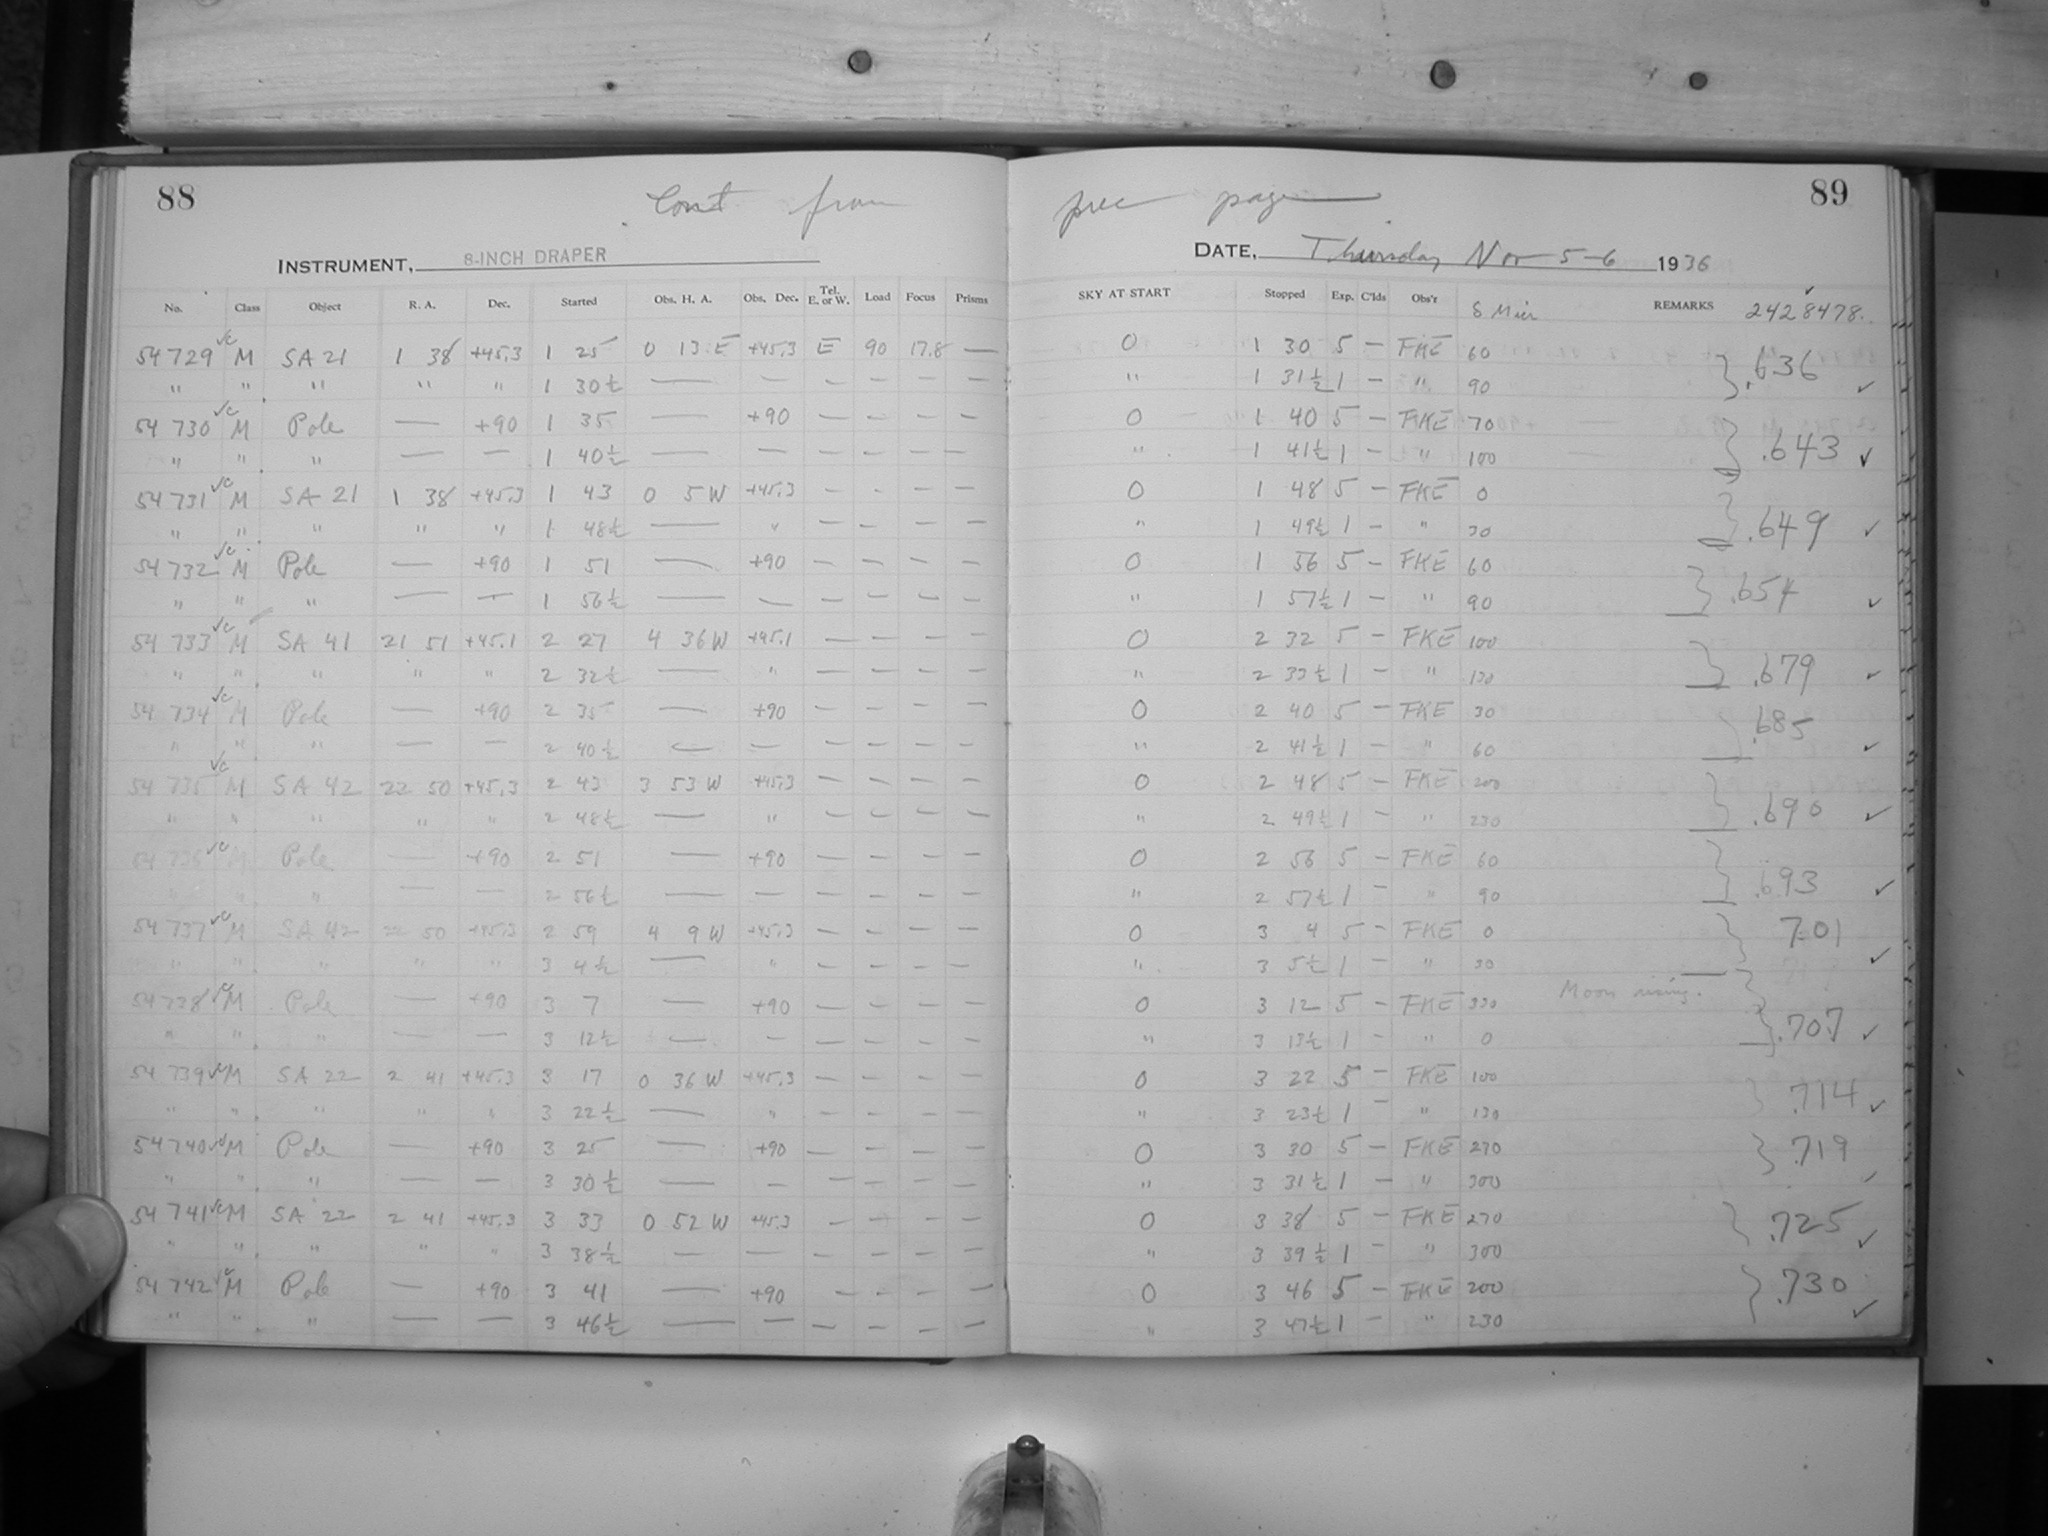 88 Cont from prec page 89
INSTRUMENT, 8-INCH DRAPER DATE, Thursday Nov 5-6 1936
No. Class Object R. A. Dec. Started Obs. H. A. Obs. Dec. Tel. E. or W. Load Focus Prisms SKY AT START Stopped Exp. C'lds Obs'r S Mier REMARKS 2428478.
54729 M SA 21 1 38 +45.3 1 25 0 13 E +45.3 E 90 17.8 — 0 1 30 5 — FKE 60 .636
" " " " " 1 30½ — — — — — — " 1 31½ 1 — " 90
54730 M Pole — +90 1 35 — +90 — — — — 0 1 40 5 — FKE 70 .643
" " " — — 1 40½ — — — — — — " 1 41½ 1 — " 100
54731 M SA 21 1 38 +45.3 1 43 0 5 W +45.3 — — — — 0 1 48 5 — FKE 0 .649
" " " " " 1 48½ — " — — — — " 1 49½ 1 — " 30
54732 M Pole — +90 1 51 — +90 — — — — 0 1 56 5 — FKE 60 .654
" " " — — 1 56½ — — — — — — " 1 57½ 1 — " 90
54733 M SA 41 21 51 +45.1 2 27 4 36 W +45.1 — — — — 0 2 32 5 — FKE 100 .679
" " " " " 2 32½ — " — — — — " 2 33½ 1 — " 130
54734 M Pole — +90 2 35 — +90 — — — — 0 2 40 5 — FKE 30 .685
" " " — — 2 40½ — — — — — — " 2 41½ 1 — " 60
54735 M SA 42 22 50 +45.3 2 43 3 53 W +45.3 — — — — 0 2 48 5 — FKE 200 .690
" " " " " 2 48½ — " — — — — " 2 49½ 1 — " 230
54736 M Pole — +90 2 51 — +90 — — — — 0 2 56 5 — FKE 60 .693
" " " — — 2 56½ — — — — — — " 2 57½ 1 — " 90
54737 M SA 42 22 50 +45.3 2 59 4 9 W +45.3 — — — — 0 3 4 5 — FKE 0 701
" " " " " 3 4½ — " — — — — " 3 5½ 1 — " 30
54738 M Pole — +90 3 7 — +90 — — — — 0 3 12 5 — FKE 330 Moon rising. .707
" " " — — 3 12½ — — — — — — " 3 13½ 1 — " 0
54739 M SA 22 2 41 +45.3 3 17 0 36 W +45.3 — — — — 0 3 22 5 — FKE 100 .714
" " " " " 3 22½ — " — — — — " 3 23½ 1 — " 130
54740 M Pole — +90 3 25 — +90 — — — — 0 3 30 5 — FKE 270 .719
" " " — — 3 30½ — — — — — — " 3 31½ 1 — " 300
54741 M SA 22 2 41 +45.3 3 33 0 52 W +45.3 — — — — 0 3 38 5 — FKE 270 .725
" " " " " 3 38½ — — — — — — " 3 39½ 1 — " 300
54742 M Pole — +90 3 41 — +90 — — — — 0 3 46 5 — FKE 200 .730
" " " — — 3 46½ — — — — — — " 3 47½ 1 — " 230